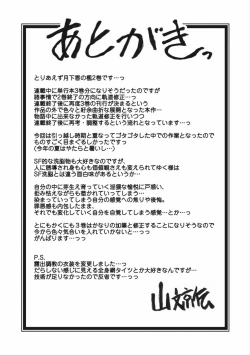 あとがきっ
とりあえず月下香の檻2巻です…っ
連載中に単行本3巻分になりそうだったのですが
諸事情で2巻終了の方向に軌道修正…っ
連載終了後に再度3巻の刊行が決まるという
作品の外で色々と紆余曲折な展開となった本作…
物語中に出来なかった軌道修正を行いつつ
連載終了後に再考・調整するという流れとなっています…っ
今回は引っ越し時期と重なってゴタゴタした中での作業となったので
ものすごく目まぐるしかったです…っ
(今年の夏はやたらと暑いし…)
SF的な洗脳物も大好きなのですが、
人に誘導され身も心も価値観さえも変えられてゆく様は
SF洗脳とは違う面白味があるというか…
自分の中に芽生え育っていく淫猥な愉悦に戸惑い、
拒み怯えながらも惹かれていってしまう…
染まっていってしまう自分の感覚への焦りや後悔。
罪悪感も内包したまま、
それでも変化していく自分を自覚してしまう感覚…とか…っ
とにもかくにも3巻はかなりの加筆と修正することになりそうなので
今から色々気合いを入れていかないと…っっ
がんばります…っっ
P.S.
露出調教の衣装を変更しました…っ
だらしない感じに見える全身網タイツとか大好きなんですが…
技術が足りなかったので反省です…っっ